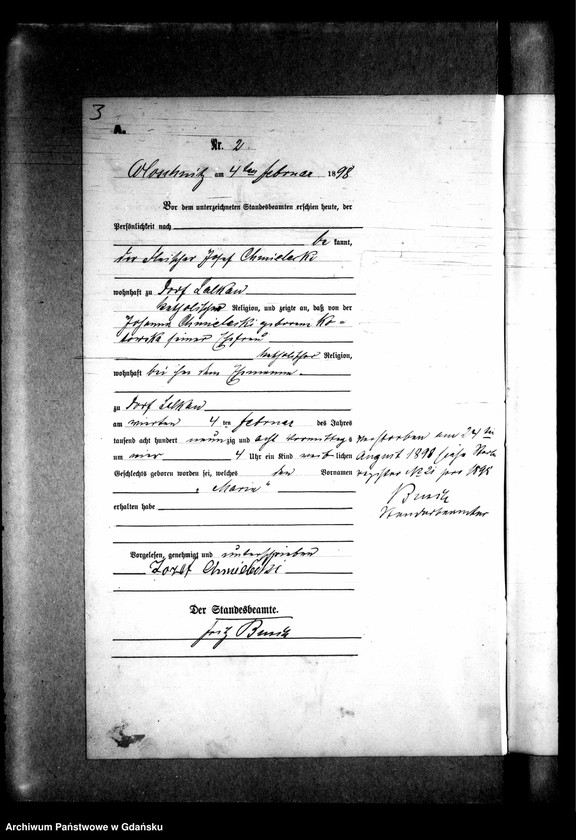 3
A.
Nr. 2
am 4ten Februar 1898
Vor dem unterzeichneten Standesbeamten erschien heute, der
Persönlichkeit nach
be kannt,
der Fleischer Josef Chmielecki
wohnhaft zu Dorf Lalkau
katholischer Religion, und zeigte an, daß von der
Johanna Chmielecki geborene Ko=
seiner Ehefrau
katholischer Religion,
wohnhaft bei ihm dem Ehemanne
zu Dorf Lalkau
am vierten 4 ten Februar des Jahres
tausend acht hundert neun zig und acht Vormittags
um vier 4 Uhr ein Kind weib lichen
Geschlechts geboren worden sei, welches den Vornamen
„Marie“
erhalten habe
Vorgelesen, genehmigt und unterschrieben
Josef
Der Standesbeamte.
Fritz
Verstorben am 24ten
August 1898 siehe
register No 21 pro 1898
Standesbeamter
Archiwum Państwowe w Gdańsku